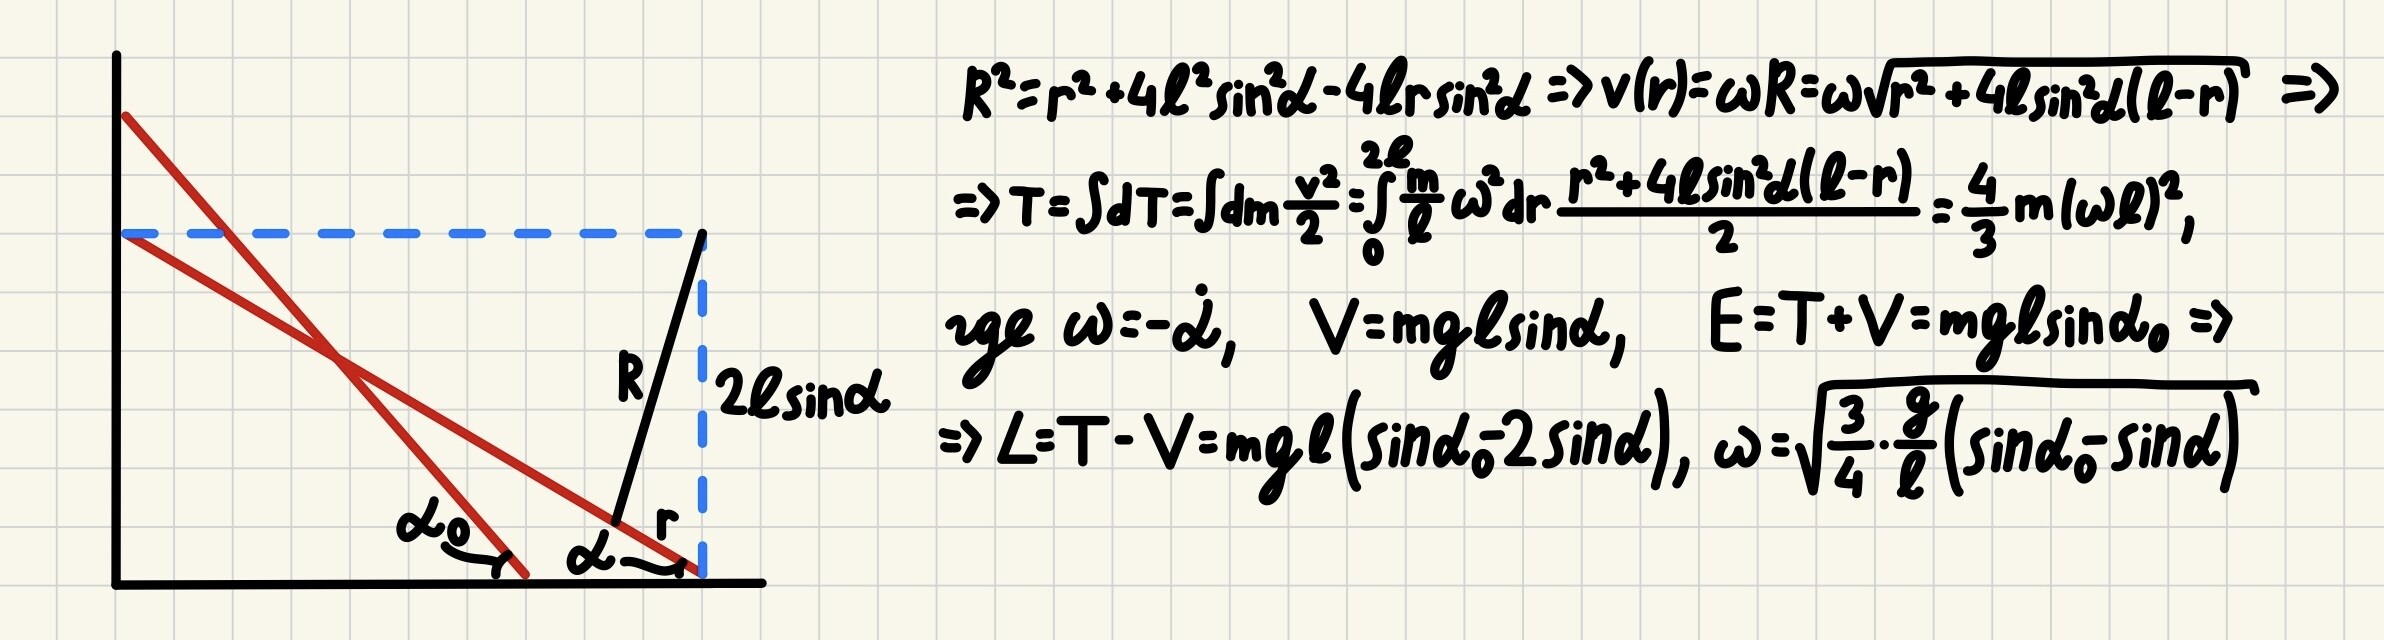 R
2lsinα
α₀
α
r
R²=r²+4l²sin²α-4lrsin²α => v(r)=ωR=ω√(r²+4lsin²α(l-r)) =>
=> T=∫dT=∫dm v²/2=∫₀²ˡ m/l ω²dr (r²+4lsin²α(l-r))/2 = 4/3 m(ωl)²,
где ω=-α̇, V=mglsinα, E=T+V=mglsinα₀ =>
=> L=T-V=mgl(sinα₀-2sinα), ω=√(3/4·g/l(sinα₀-sinα))